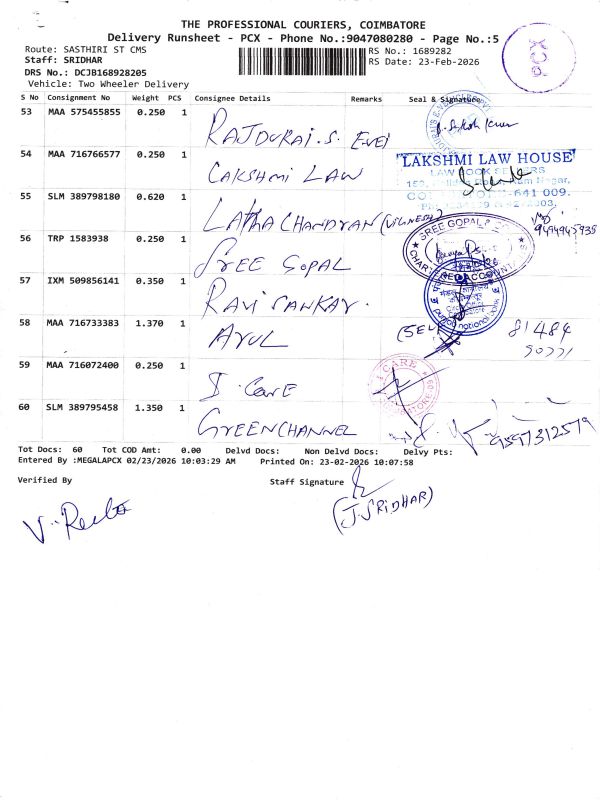 THE PROFESSIONAL COURIERS, COIMBATORE
Delivery Runsheet - PCX - Phone No.:9047080280 - Page No.:5
Route: SASTHIRI ST CMS
RS No.: 1689282
Staff: SRIDHAR
RS Date: 23-Feb-2026
DRS No.: DCJB168928205
Vehicle: Two Wheeler Delivery
PCX
S No Consignment No Weight PCS Consignee Details Remarks Seal & Signature
53 MAA 575455855 0.250 1 RAJDURAI.S. EVEI
54 MAA 716766577 0.240 1 LAKSHMI LAW
LAKSHMI LAW HOUSE
LAW BOOK SELLERS
641 009.
55 SLM 389798180 0.620 1 LATHA CHANDRAN (VIGNESH)
56 TRP 1583938 0.250 1 SREE GOPAL
SREE GOPAL
57 IXM 509856141 0.350 1 RAVI SANKAR.
punjab national bank
58 MAA 716733383 1.370 1 ARUL
(SELF)
81484
59 MAA 716072400 0.250 1 I CARE
I CARE
60 SLM 389795458 1.350 1 GREENCHANNEL
9597312579
Tot Docs: 60 Tot COD Amt: 0.00 Delvd Docs: Non Delvd Docs: Delvy Pts:
Entered By :MEGALAPCX 02/23/2026 10:03:29 AM Printed On: 23-02-2026 10:07:58
Verified By
Staff Signature
(J.SRIDHAR)